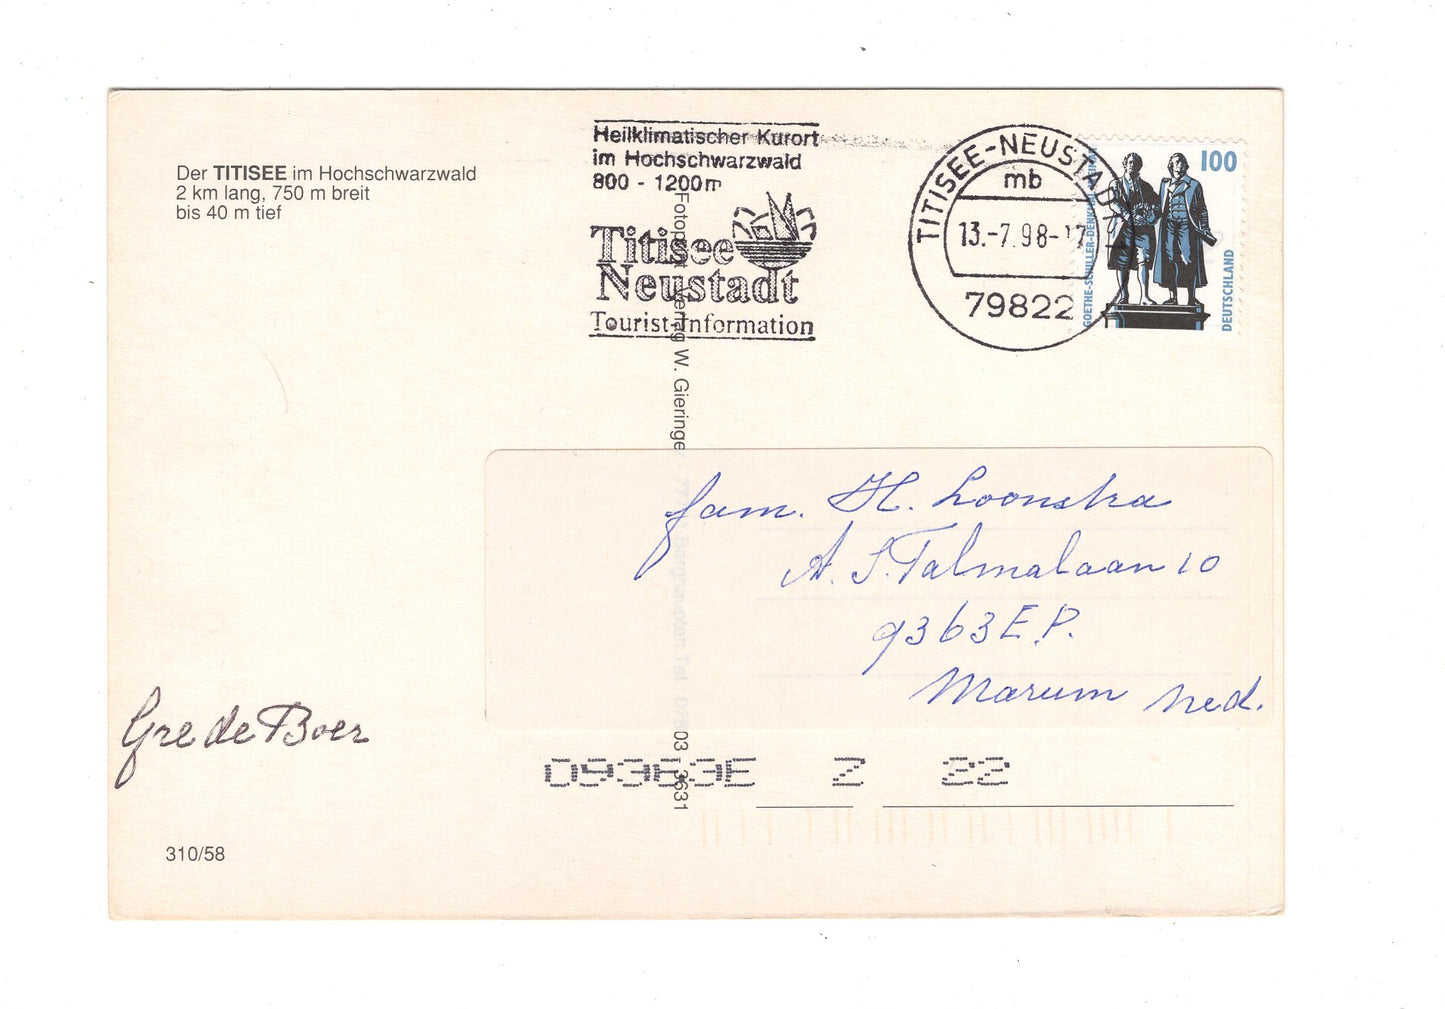 Der TITISEE im Hochschwarzwald
2 km lang, 750 m breit
bis 40 m tief
Heilklimatischer Kurort
im Hochschwarzwald
800 - 1200m
Titisee
Neustadt
Tourist-Information
TITISEE-NEUSTADT
mb
13.-7.98-17
79822
100
GOETHE-SCHILLER-DENKMAL
DEUTSCHLAND
Verlag W. Gieringer
Tel.
03 - 3631
fam. H. Loonstra
A. S. Talmalaan 10
9363 E.P.
Marum Ned.
Gre de Boer
09363E Z 22
310/58